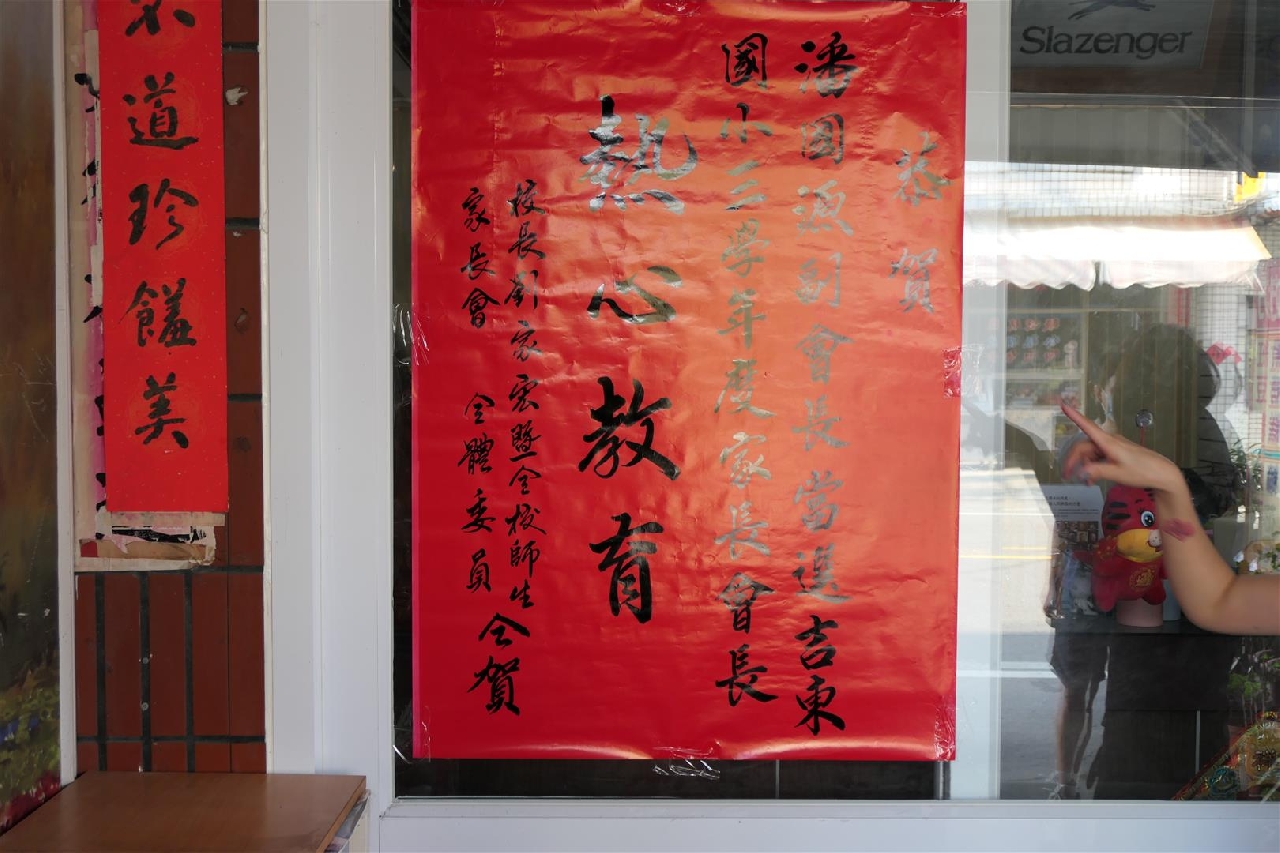 恭賀
潘国源副會長當選吉東
國小二學年度家長會長
熱心教育
校長劉家宏暨全校師生
家長會 全體委員 仝賀
道珍饈美
Slazenger